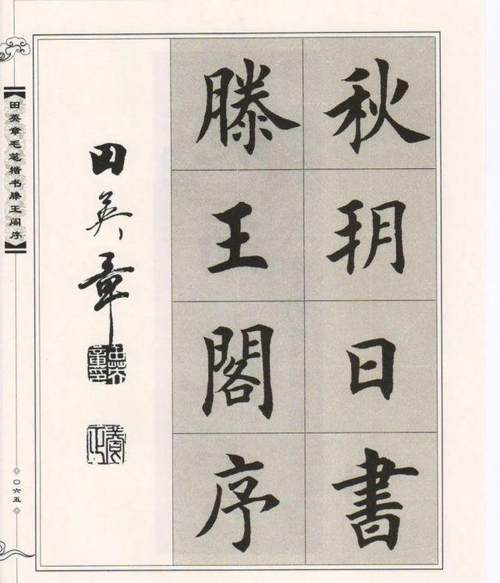 秋玥日書
滕王閣序
田英章
【田英章毛笔楷书滕王阁序】
〇六五